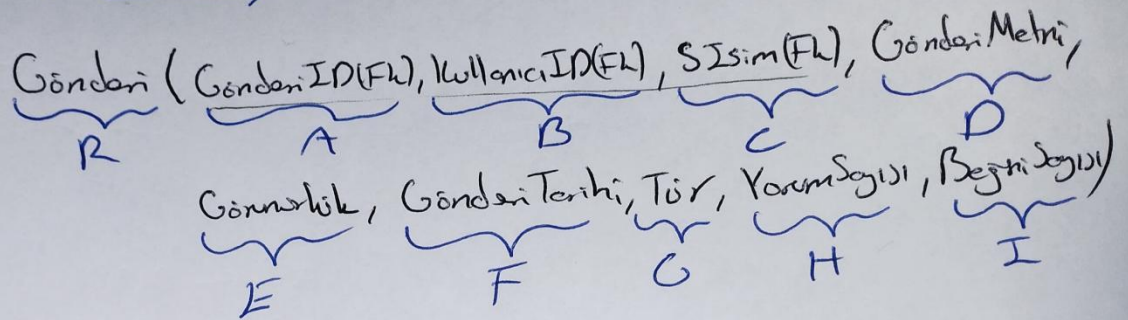 Gönderi (GönderiID(Fk), KullanıcıID(Fk), SIsim(Fk), GönderiMetni,
R A B C D
Görünürlük, GönderiTarihi, Tür, YorumSayısı, BeğeniSayısı)
E F G H I